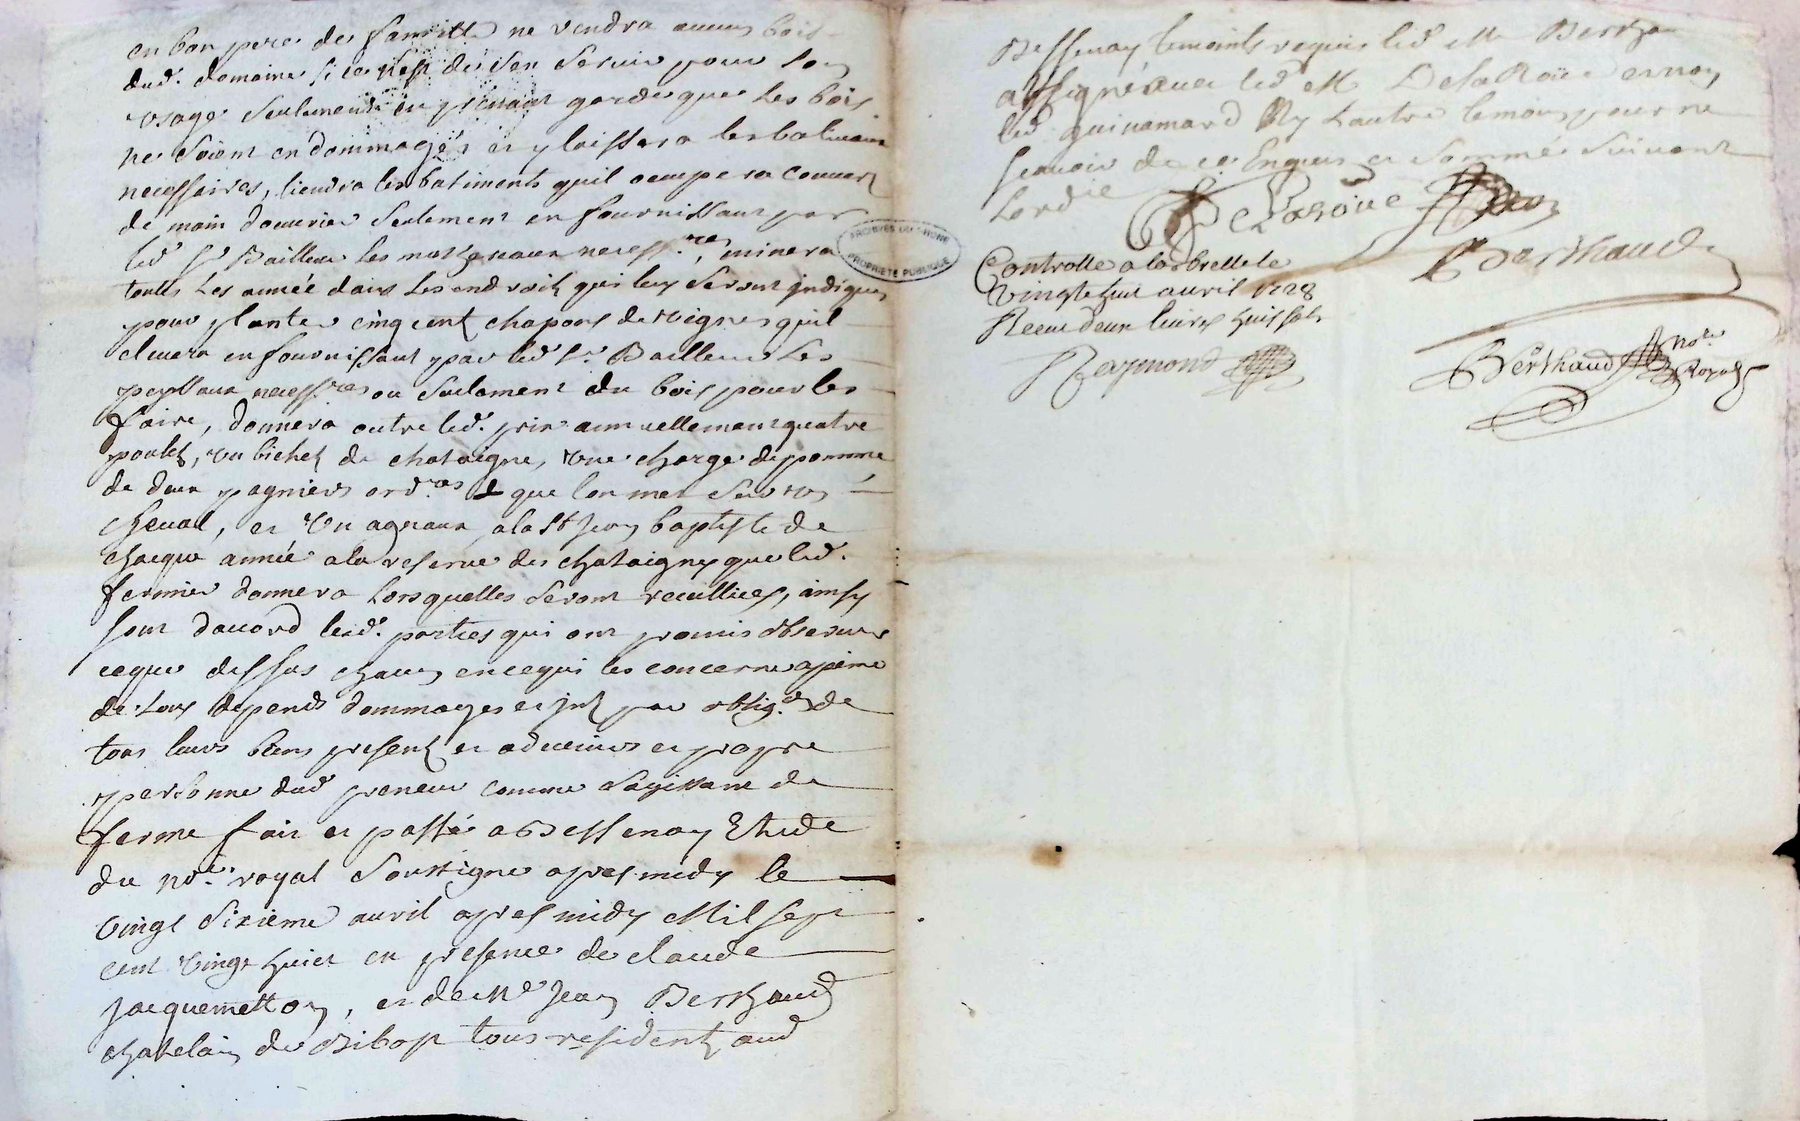 en bon pere de famille ne vendra aucun bois
dud. domaine si ce nest de sen servir pour son
usage seulement en prenant garde que les bois
ne soient endommagés et y laissera les baliveaux
necessaires, tiendra les batiments quil occupera couvert
de main douvrier seulement en fournissant par
led. Sr Bailleur les materiaux necessres, minera
touttes les année dans les endroits qui luy seront indiqués
pour planter cinq cent chapons de vignes quil
elevera en fournissant par led. Sr Bailleur les
necessres ou seulement du bois pour les
faire, donnera outre led. prix annuellement quatre
poulets, un bichet de chataigne, une charge de pomme
de deux pagniers ordres que lon met sur un
cheval, et un agneaux a la St Jean baptiste de
chaque année a la reserve des chataignes que led.
fermier donnera lorsquelles seront receuillies, ainsy
sont daccord lesd. parties qui ont promis observer
ceque dessus chacun en cequi les concerne a peine
de tous depends dommages et jnts par oblig.on de
tous leurs biens present et advenirs et propre
personne dud. preneur comme sagissant de
ferme fait et passé a Bessenay Etude
du nore royal soussigne apres midy le
vingt sixieme avril apres midy Mil sept
cent vingt huict en presence de claude
Jacquemetton, et de Me Jean Berthaud
chatelain de Bibost tous residents aud.
Bessenay temoints requis led. Me Berthau
a signé avec led. Me Delaroüe et non
led. guinamard ny lautre temoin pour ne
scavoir de ce Enquis et sommés suivant
Lordce
Delaroüe
Berthaud
ARCHIVES DU RHONE
PROPRIETE PUBLIQUE
Controlle a la brelle le
vingt huit avril 1728
Receu deux livres huit sols
Raymond
Berthaud Nore
Royal